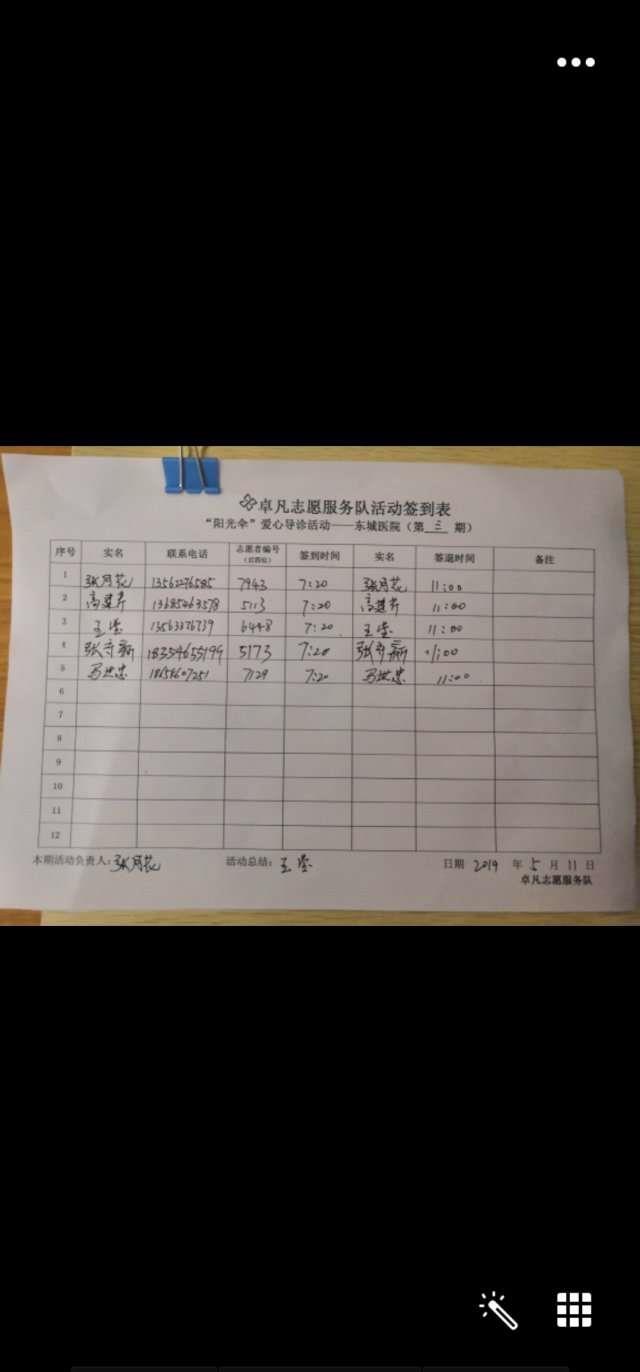 卓凡志愿服务队活动签到表
“阳光伞”爱心导诊活动——东城医院（第 三 期）
序号 实名 联系电话 志愿者编号（后四位） 签到时间 实名 签退时间 备注
1 张月花 13562276585 7943 7:20 张月花 11:00
2 高建芹 13685463578 5113 7:20 高建芹 11:00
3 王莹 13563376739 6448 7:20 王莹 11:00
4 张守新 18354655199 5173 7:20 张守新 11:00
5 7129 7:20 11:00
6
7
8
9
10
11
12
本期活动负责人：张月花 活动总结：王莹 日期 2019 年 5 月 11 日
卓凡志愿服务队